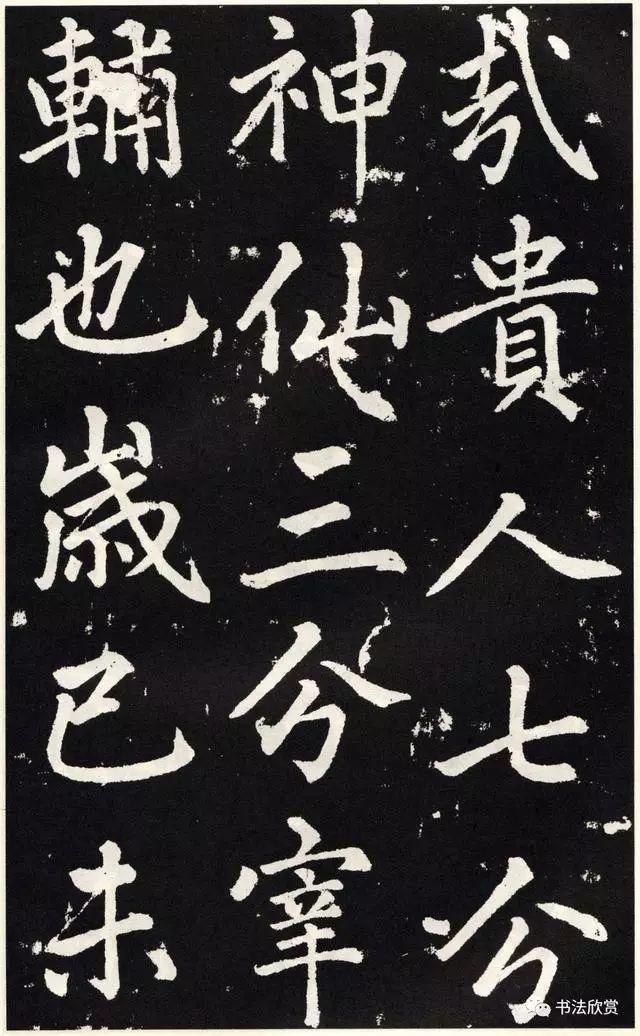 哉貴人七分
神仙三分宰
輔也歲己未
书法欣赏